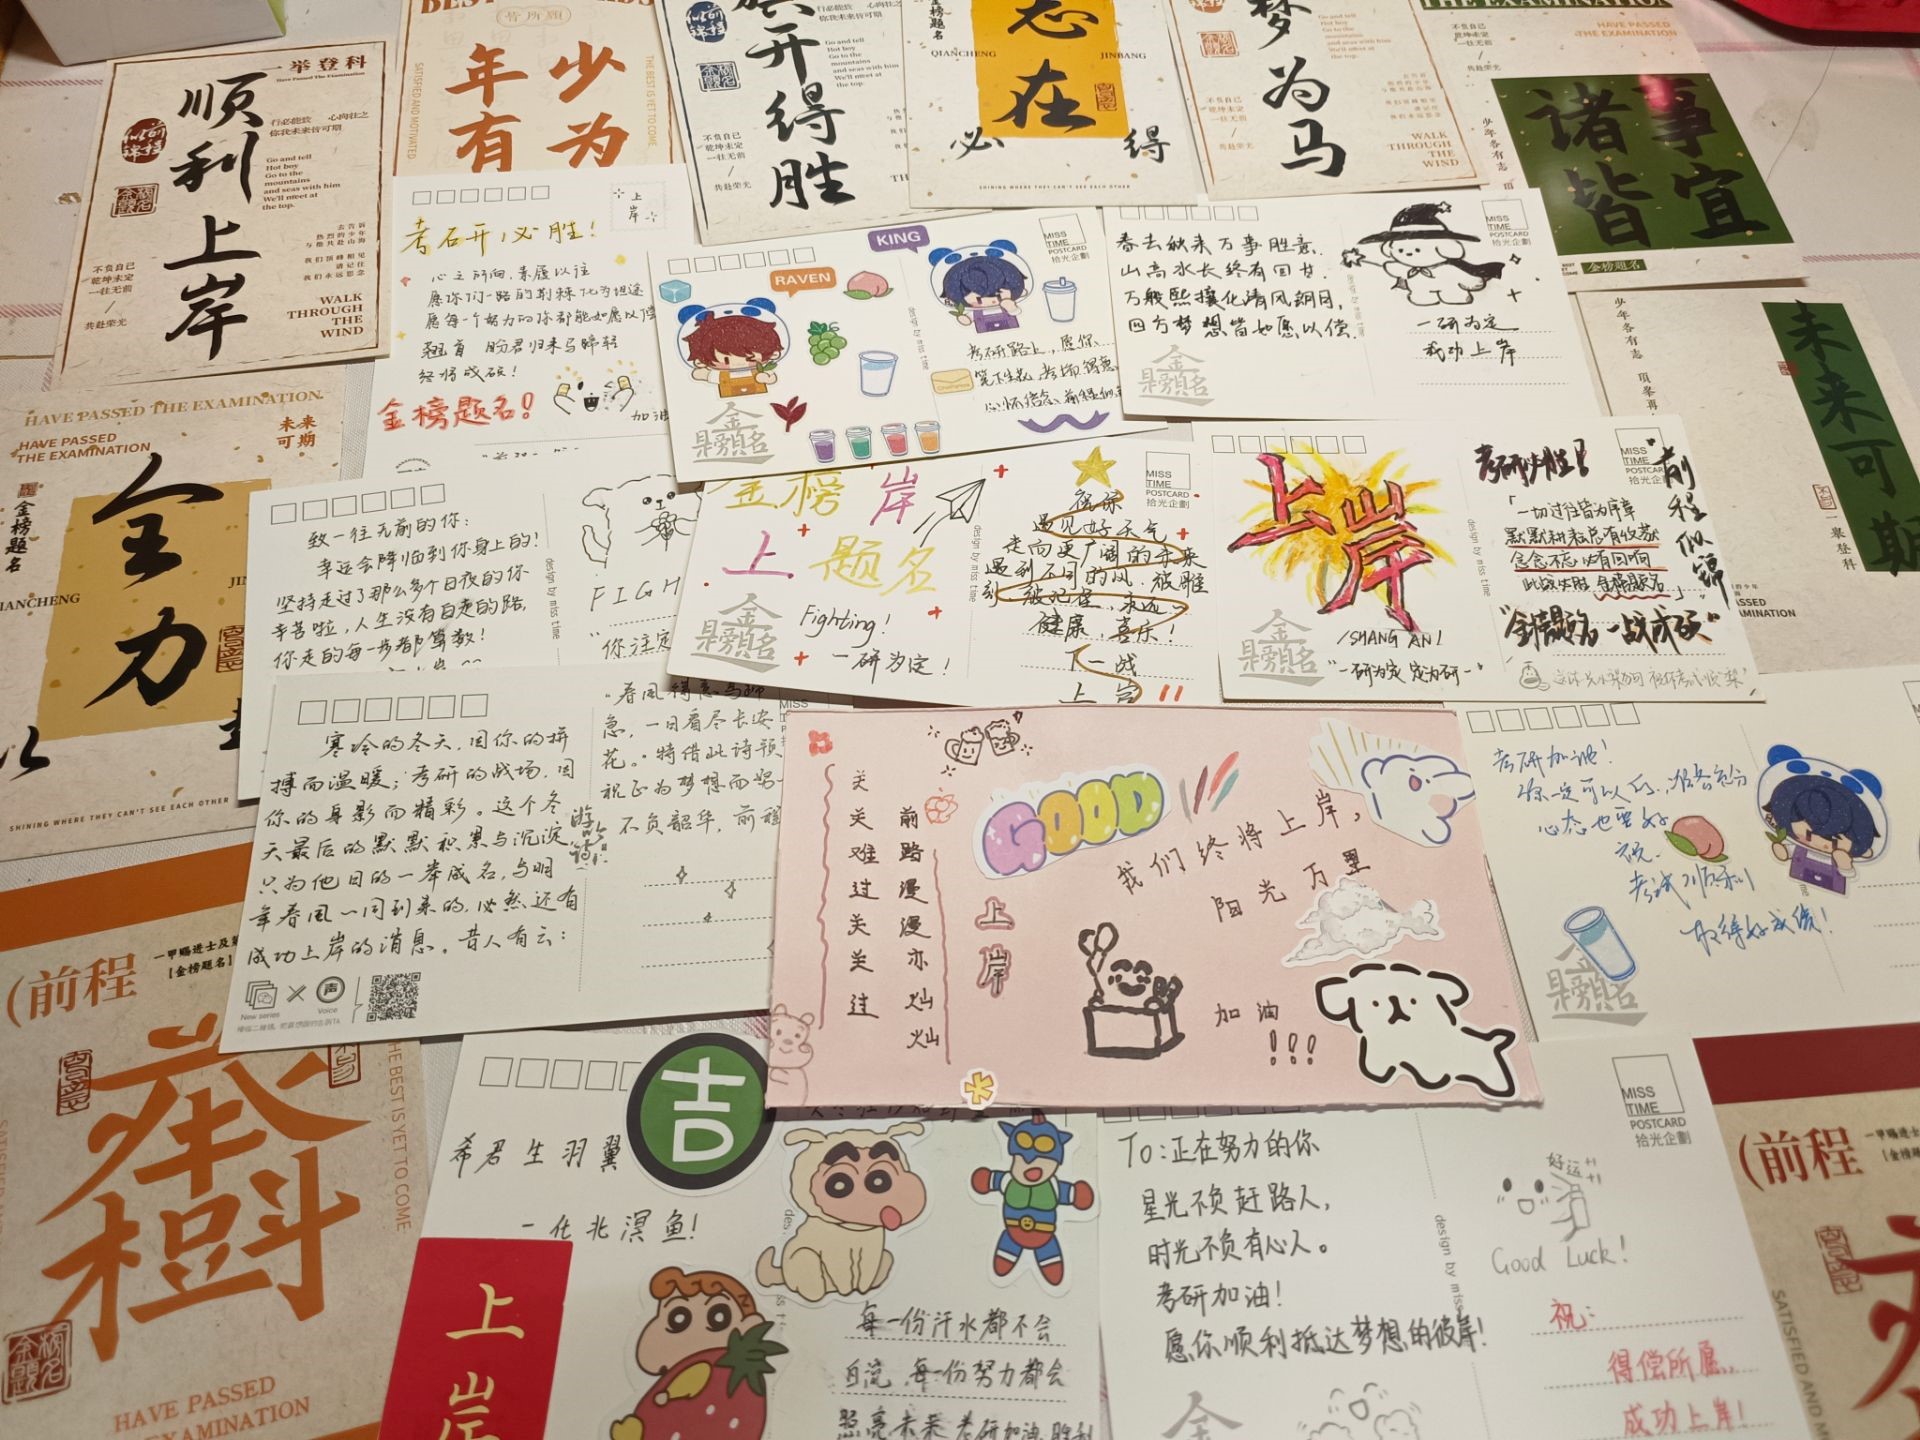 一举登科
Have Passed The Examination
顺利上岸
行必能致 心向往之
你我未来皆可期
Go and tell
Hot boy
Go to the
mountains
and seas with him
We'll meet at
the top.
去告诉
热烈的少年
与他共赴山海
我们顶峰相见
请记住
我们永远想念
不负自己
乾坤未定
一往无前
共赴荣光
WALK
THROUGH
THE
WIND
昔所愿
少为
年有
SATISFIED AND MOTIVATED
THE BEST IS YET TO COME
开得胜
Go and tell
Hot boy
Go to the
mountains
and seas with him
We'll meet at
the top.
不负自己
乾坤未定
一往无前
共赴荣光
金榜题名
QIANCHENG
JINBANG
志在
必 得
SHINING WHERE THEY CAN'T SEE EACH OTHER
梦为马
不负自己
乾坤未定
一往无前
共赴荣光
WALK
THROUGH
THE
WIND
THE EXAMINATION
HAVE PASSED
THE EXAMINATION
少年各有志
事宜
诸皆
金榜题名
上岸
考研必胜!
心之所向,素履以往
愿你们一路的荆棘化为坦途
愿每一个努力的你都能如愿以偿
翘首 盼君归来马蹄轻
终将成硕!
金榜题名!
加油
KING
RAVEN
MISS
TIME
POSTCARD
拾光企劃
考研路上,愿你
笔下生花,考场得意
心怀信念,前程似
金榜題名
design by miss time
春去秋来万事胜意
山高水长终有回甘
万般熙攘化清风朗月
四方梦想皆如愿以偿.
MISS
TIME
POSTCARD
拾光企劃
一研为定
成功上岸
金榜題名
少年各有志
未来可期
一舉登科
HAVE PASSED THE EXAMINATION
HAVE PASSED
THE EXAMINATION
未来
可期
金榜题名
全力
SHINING WHERE THEY CAN'T SEE EACH OTHER
致一往无前的你:
幸运会降临到你身上的!
坚持走过了那么多个日夜的你
辛苦啦,人生没有白走的路,
你走的每一步都算数!
design by miss time
FIGH
"你注定
金榜
题名
上岸
Fighting!
一研为定!
金榜題名
design by miss time
MISS
TIME
POSTCARD
拾光企劃
祝你
遇见好天气
走向更广阔的未来
遇到不同的风,被雕
刻
健康,喜乐!
下一战
上岸
上岸
/SHANG AN/
"一研为定 定为研一"
金榜題名
design by miss time
考研必胜!
MISS
TIME
POSTCARD
拾光企劃
"前程似锦
「一切过往皆为序章
默默耕耘总有收获
念念不忘必有回响
此战必胜 金榜题名」
"金榜题名 一战成硕"
寒冷的冬天,因你的拼
搏而温暖;考研的战场,因
你的身影而精彩。这个冬
天最后的默默积累与沉淀
只为他日的一举成名,与明
年春风一同到来的,必然还有
成功上岸的消息。昔人有云:
"春风得意马蹄
急,一日看尽长安
花。"特借此诗预
祝正为梦想而努
不负韶华,前程
New series
声
Voice
关关难过关关过
前路漫漫亦灿灿
GOOD
上岸
我们终将上岸,
阳光万里
加油
!!!
考研加油!
你一定可以的,准备充分
心态也要好
祝.
考试顺利
取得好成绩!
金榜題名
(前程
一甲赐进士及第
【金榜题名】
THE BEST IS YET TO COME
HAVE PASSED
EXAMINATION
吉
希君生羽翼
一化北溟鱼!
上岸
每一份汗水都不会
白流,每一份努力都会
照亮未来 考研加油,胜利
To:正在努力的你
星光不负赶路人,
时光不负有心人。
考研加油!
愿你顺利抵达梦想的彼岸!
design by miss
MISS
TIME
POSTCARD
拾光企劃
好运+1
Good Luck!
祝:
得偿所愿,
成功上岸!
(前程
【金榜题名